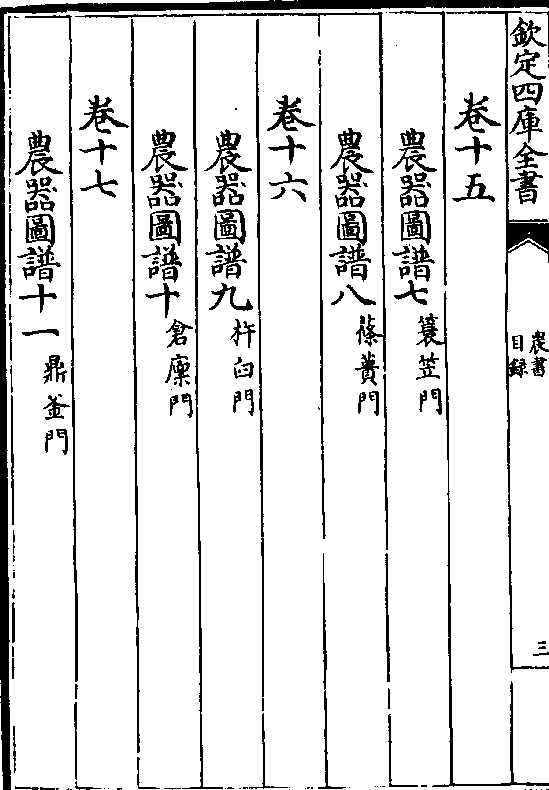 欽定四庫全書
農書
目録
三
卷十五
農器圖譜七 蓑笠門
農器圖譜八 蓧蕢門
卷十六
農器圖譜九 杵臼門
農器圖譜十 倉廩門
卷十七
農器圖譜十一 鼎釜門